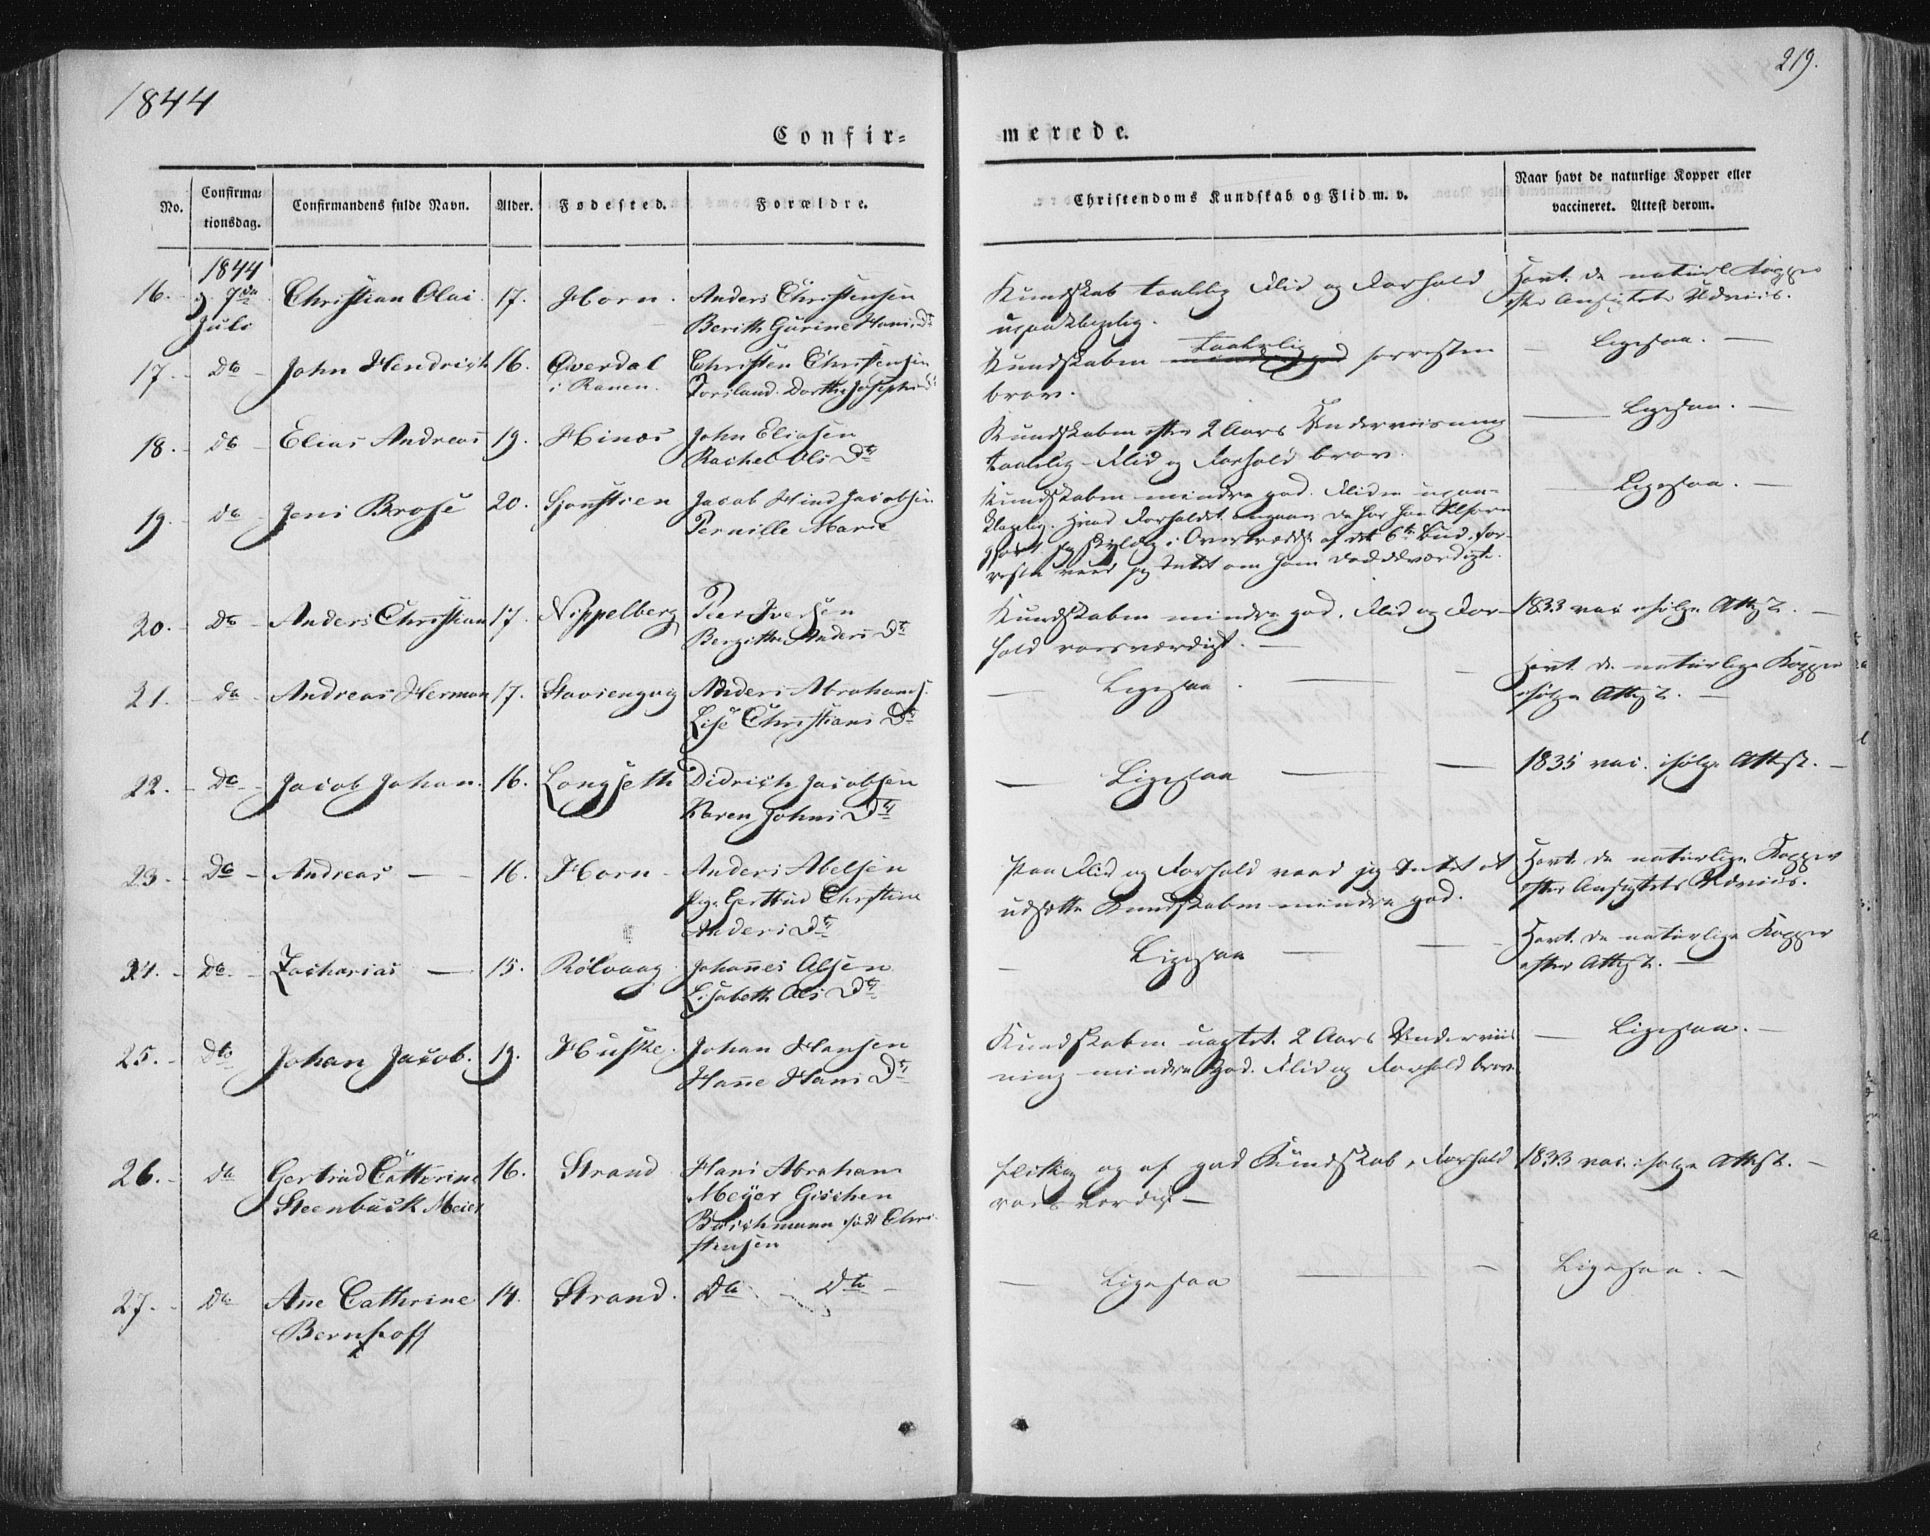 1844
219.
Confir=
merede.
No.
Confirma=
tionsdag.
Confirmandens fulde Navn.
Alder.
Fødested.
Forældre.
Christendoms Kundskab og Flid m. v.
Naar havt de naturlige Kopper eller
vaccineret. Attest derom.
1844
16. 7de Juli Christian Olai. 17. Horn. Anders Christensen
Berith Gurine Hans Dtr
Kundskab taalelig Flid og Forhold
upaaklagelig.
Havt de naturl Kopper
efter Ansigtets Udviis.
17. Do John Hendrich 16. Qverdal
i Ranen.
Christen Christensen
Forsland. Dorthe Josephs Dr
Kundskaben taalelig forresten
brav.
Ligesaa.
18. do Elias Andreas 19. Hinæs John Eliasen
Rachel Ols Dtr
Kundskaben efter 2 Aars Underviisning
taalelig Flid og Forhold brav.
Ligesaa.
19. do Jens Brose 20. Jacob Hind Jacobsen
Pernille Marie
Kundskaben mindre god. Fliden upaa-
klagelig. Hvad Forholdet angaaer da har han
gjort sig skyldig i Overtrædelse af det 6te Bud. for-
resten veed jeg Intet om ham
Ligesaa.
20. Do Anders Christian 17. Nippelberg Peer Iversen
Bergithe Anders Dtr
Kundskaben mindre god. Flid og For-
hold roesværdigt.
1833 vac. ifølge Attest.
21. do Andreas Herman 17. Anders Abrahams.
Lise Christians Dtr
Ligesaa
Havt de naturlige Kopper
ifølge Attest.
22. Do Jacob Johan. 16. Langseth Didrich Jacobsen
Karen Johns Dtr
Ligesaa
1835 vac. ifølge Attest.
23. Do Andreas 16. Horn Anders Abelsen
Pge. Gertrud Christine
Anders Dtr
Paa Flid og Forhold veed jeg Intet at
udsætte Kundskaben mindre god.
Havt de naturlige Kopper
efter Ansigtets Udviis.
24. Do Zacharias 15. Rølvaag Johannes Olsen
Lisabeth Ols Dtr
Ligesaa
Havt de naturlige Kopper
efter Attest.
25. Dto Johan Jacob. 19. Huske Johan Hansen
Hanne Hans Dtr
Kundskaben uagtet 2 Aars Underviis
ning mindre god. Flid og Forhold brav.
Ligesaa.
26. do Gertrud Catherine
Steenbuck Meier
16. Strand Hans Abraham
Meyer Gischen
Buschmann født Chri
stensen
flittig og af god Kundskab, Forhold
roesværdigt
1833 vac. ifølge Attest.
27. Do Anne Cathrine
Bernhoff
14. Strand. Do Dto
Ligesaa
Ligesaa.